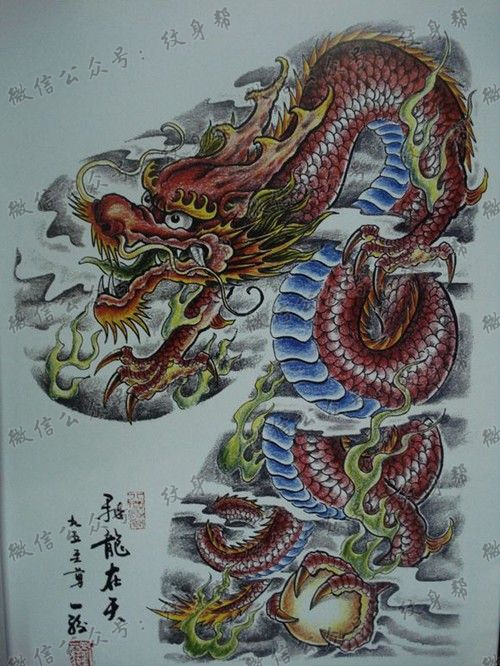 微信公众号：纹身帮
微信公众号：纹身帮
微信公众号：纹身帮
微信公众号：纹身帮
微信公众号：纹身帮
微信公众号：纹身帮
龍在天
九五至尊